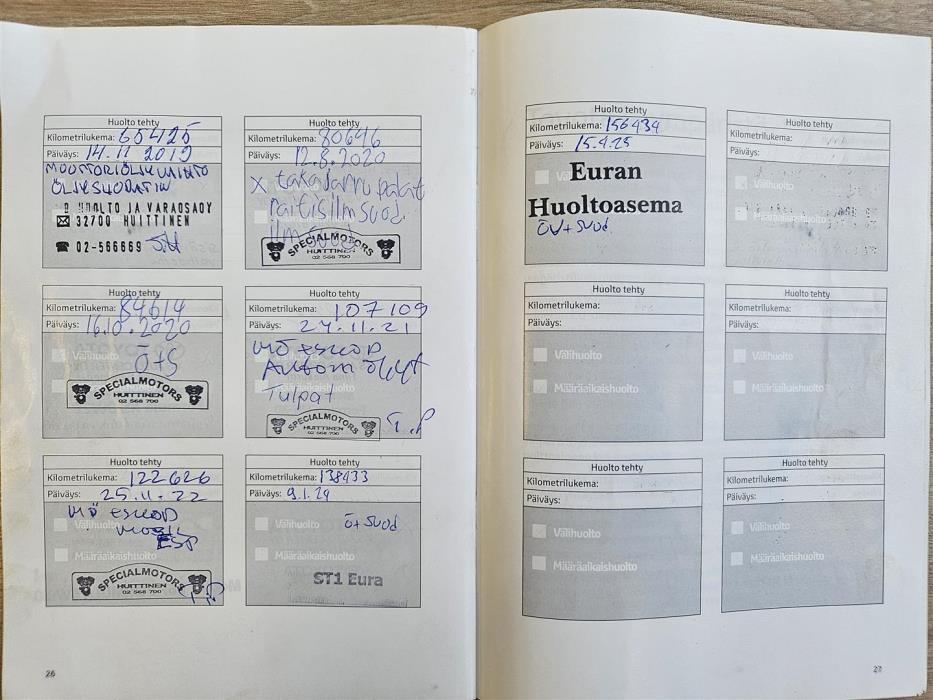 Huolto tehty
Kilometrilukema: 65425
Päiväys: 14.11 2019
MOOTTORIÖLJY VAIHTO
ÖLJYSUODATIN
HUOLTO JA VARAOSA OY
32700 HUITTINEN
02-566669
Huolto tehty
Kilometrilukema: 80646
Päiväys: 12.8.2020
X takajarru palat
raitisilmsuod.
ilm suod
SPECIALMOTORS
HUITTINEN
02 568 700
Huolto tehty
Kilometrilukema: 84614
Päiväys: 16.10.2020
Välihuolto
Ö+S
SPECIALMOTORS
HUITTINEN
02 568 700
Huolto tehty
Kilometrilukema: 107109
Päiväys: 24.11.21
Välihuolto
Määräaikaishuolto
Tulpat
SPECIALMOTORS
HUITTINEN
02 568 700
Huolto tehty
Kilometrilukema: 122626
Päiväys: 25.11.22
Välihuolto
Määräaikaishuolto
SPECIALMOTORS
HUITTINEN
02 568 700
Huolto tehty
Kilometrilukema: 138433
Päiväys: 9.1.24
Välihuolto
Ö+suod
Määräaikaishuolto
ST1 Eura
26
Huolto tehty
Kilometrilukema: 156434
Päiväys: 15.4.25
Euran
Huoltoasema
ÖV+suod
Huolto tehty
Kilometrilukema:
Päiväys:
Välihuolto
Määräaikaishuolto
Huolto tehty
Kilometrilukema:
Päiväys:
Välihuolto
Määräaikaishuolto
Huolto tehty
Kilometrilukema:
Päiväys:
Välihuolto
Määräaikaishuolto
Huolto tehty
Kilometrilukema:
Päiväys:
Välihuolto
Määräaikaishuolto
Huolto tehty
Kilometrilukema:
Päiväys:
Välihuolto
Määräaikaishuolto
27